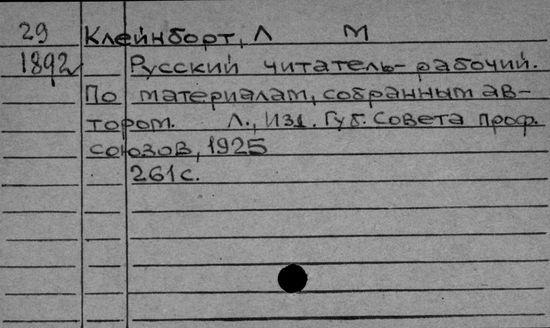 29 Клейнборт, Л М
1892 Русский читатель-рабочий.
По материалам, собранным ав-
тором. Л., Изд. Губ. Совета проф.
союзов, 1925
261 с.